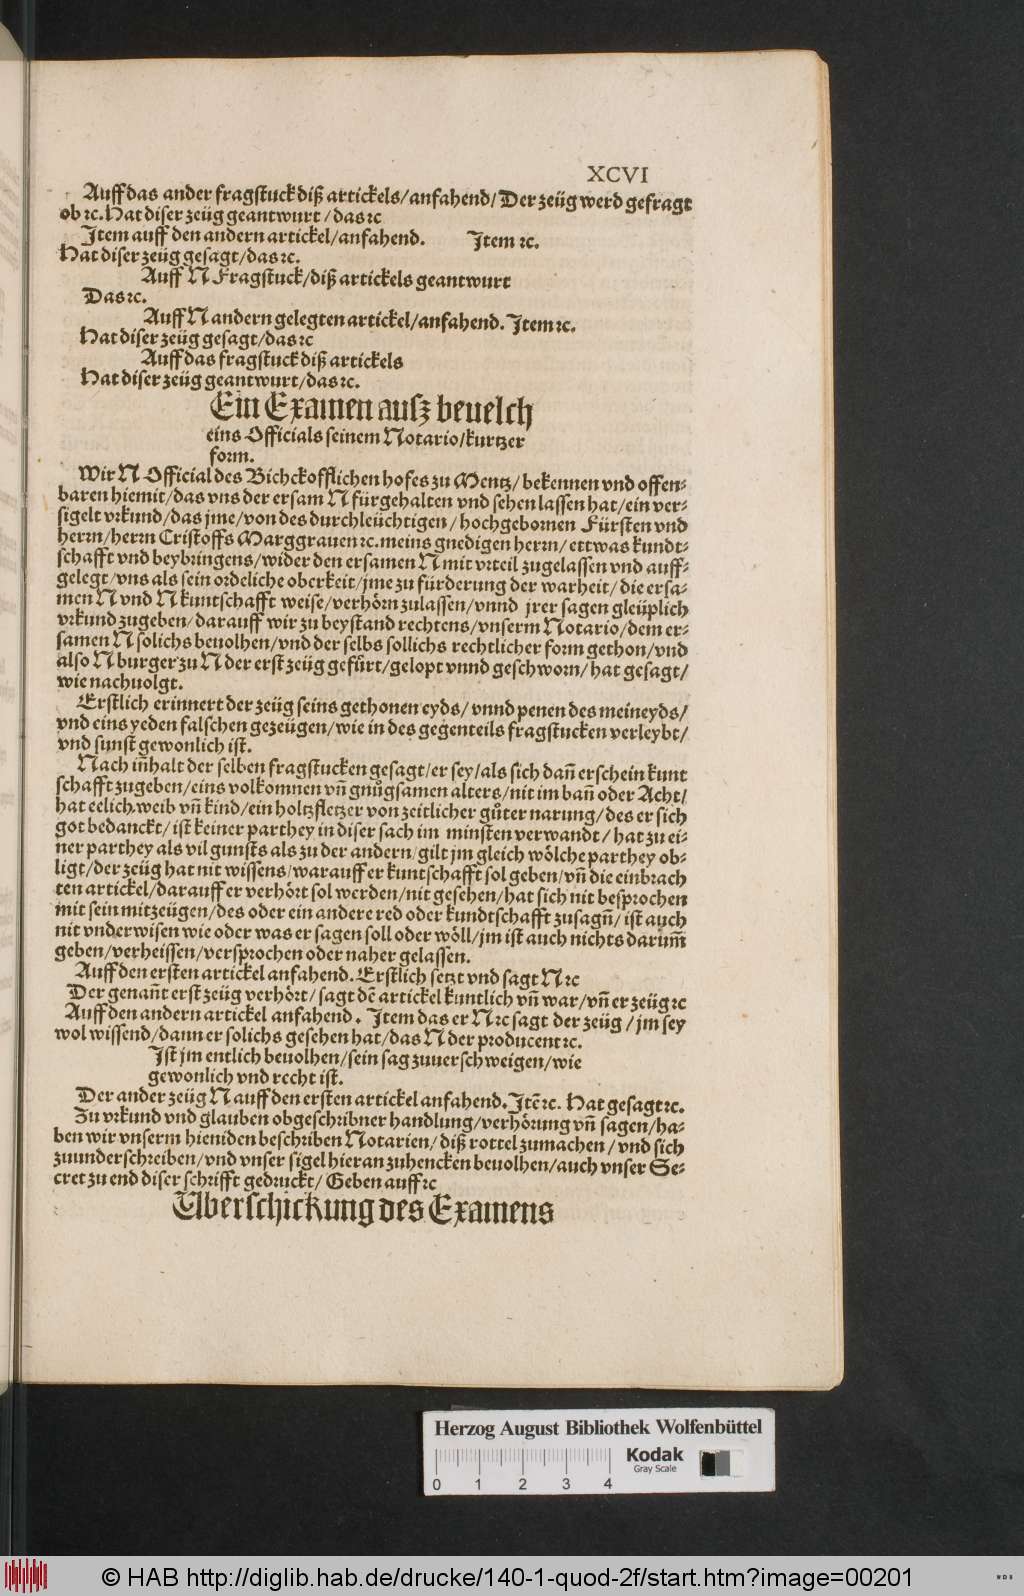 XCVI
Auff das ander fragstuck diß artickels/anfahend/Der zeüg werd gefragt
ob ꝛc. Hat diser zeüg geantwurt/das ꝛc
Item auff den andern artickel/anfahend. Item ꝛc.
Hat diser zeüg gesagt/das ꝛc.
Auff N Fragstuck/diß artickels geantwurt
Das ꝛc.
Auff N andern gelegten artickel/anfahend. Item ꝛc.
Hat diser zeüg gesagt/das ꝛc
Auff das fragstuck diß artickels
Hat diser zeüg geantwurt/das ꝛc.
Ein Examen ausz beuelch
eins Officials seinem Notario/kurtzer
form.
Wir N Official des Bichckofflichen hofes zu Mentz/ bekennen vnd offen⸗
baren hiemit/das vns der ersam N fürgehalten vnd sehen lassen hat/ein ver⸗
sigelt vrkund/das jme/von des durchleüchtigen/hochgebornen Fürsten vnd
herrn/herrn Cristoffs Marggrauen ꝛc. meins gnedigen herrn/ettwas kundt⸗
schafft vnd beybringens/wider den ersamen N mit vrteil zugelassen vnd auff⸗
gelegt/vns als sein ordeliche oberkeit/jme zu fürderung der warheit/die ersa⸗
men N vnd N kuntschafft weise/verhörn zulassen/vnnd jrer sagen gleüplich
vrkund zugeben/darauff wir zu beystand rechtens/vnserm Notario/dem er⸗
samen N solichs beuolhen/vnd der selbs sollichs rechtlicher form gethon/vnd
also N burger zu N der erst zeüg gefürt/gelopt vnnd geschworn/hat gesagt/
wie nachuolgt.
Erstlich erinnert der zeüg seins gethonen eyds/vnnd penen des meineyds/
vnd eins yeden falschen gezeügen/wie in des gegenteils fragstucken verleybt/
vnd sunst gewonlich ist.
Nach iñhalt der selben fragstucken gesagt/er sey/als sich dañ erschein kunt
schafft zugeben/eins volkomnen vñ gnůgsamen alters/nit im bañ oder Acht/
hat eelich weib vñ kind/ein holtzfletzer von zeitlicher gůter narung/des er sich
got bedanckt/ist keiner parthey in diser sach im minsten verwandt/hat zu ei⸗
ner parthey als vil gunsts als zu der andern/gilt jm gleich wölche parthey ob⸗
ligt/der zeüg hat nit wissens/warauff er kuntschafft sol geben/vñ die einbrach
ten artickel/darauff er verhört sol werden/nit gesehen/hat sich nit besprochen
mit sein mitzeügen/des oder ein andere red oder kundtschafft zusagñ/ist auch
nit vnderwisen wie oder was er sagen soll oder wöll/jm ist auch nichts darum̃
geben/verheissen/versprochen oder naher gelassen.
Auff den ersten artickel anfahend. Erstlich setzt vnd sagt N ꝛc
Der genañt erst zeüg verhört/sagt dẽ artickel kuntlich vñ war/vñ er zeüg ꝛc
Auff den andern artickel anfahend. Item das er N ꝛc sagt der zeüg/jm sey
wol wissend/dann er solichs gesehen hat/das N der producent ꝛc.
Ist jm entlich beuolhen/sein sag zuuerschweigen/wie
gewonlich vnd recht ist.
Der ander zeüg N auff den ersten artickel anfahend. Itẽ ꝛc. Hat gesagt ꝛc.
Zu vrkund vnd glauben obgeschribner handlung/verhörung vñ sagen/ha⸗
ben wir vnserm hieniden beschriben Notarien/diß rottel zumachen/vnd sich
zuunderschreiben/vnd vnser sigel hieran zuhencken beuolhen/auch vnser Se⸗
cret zu end diser schrifft gedruckt/Geben auff ꝛc
Uberschickung des Examens
Herzog August Bibliothek Wolfenbüttel
Kodak
Gray Scale
0 1 2 3 4
© HAB http://diglib.hab.de/drucke/140-1-quod-2f/start.htm?image=00201